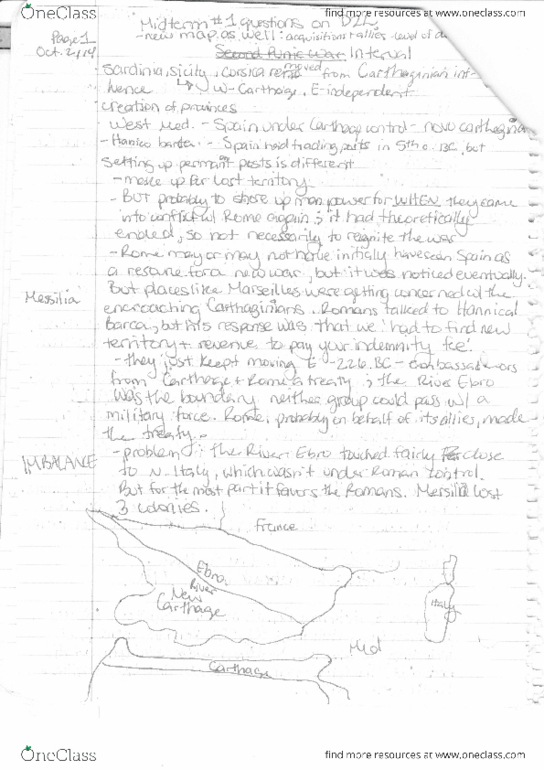 OneClass
find more resources at www.oneclass.com
Midterm #1 questions on D2L
Page 1
- new map as well: acquisitions + allies - level of
Oct. 2/14
Second Punic War Interval
Sardinia, sicily, corsica removed from Carthaginian inf-
luence W-Carthage, E-independent
creation of provinces
West Med. - Spain under Carthage control - nova carthagina
- Spain had trading posts in 5th c. BC, but
setting up permanent posts is different
- make up for lost territory
- BUT probably to store up man power for WHEN they came
into conflict w/ Rome again; it had theoretically
ended, so not necessarily to reignite the war
- Rome may or may not have initially have seen Spain as
a resource for a new war, but it was noticed eventually.
Messilia
But places like Marseilles were getting concerned w/ the
encroaching Carthaginians. Romans talked to Hannical
Barca, but his response was that we 'had to find new
territory + revenue to pay your indemnity fee'.
- they just kept moving E - 226 BC - embassadors
from Carthage + Rome's treaty; the River Ebro
was the boundary neither group could pass w/ a
military force. Rome, probably on behalf of its allies, made
the treaty.
IMBALANCE
- problem: the River Ebro touched fairly close
to N. Italy, which wasn't under Roman control.
But for the most part it favers the Romans. Mersilia lost
3 colonies.
France
Ebro
River
New
Carthage
Italy
Med
Carthage
OneClass
find more resources at www.oneclass.com